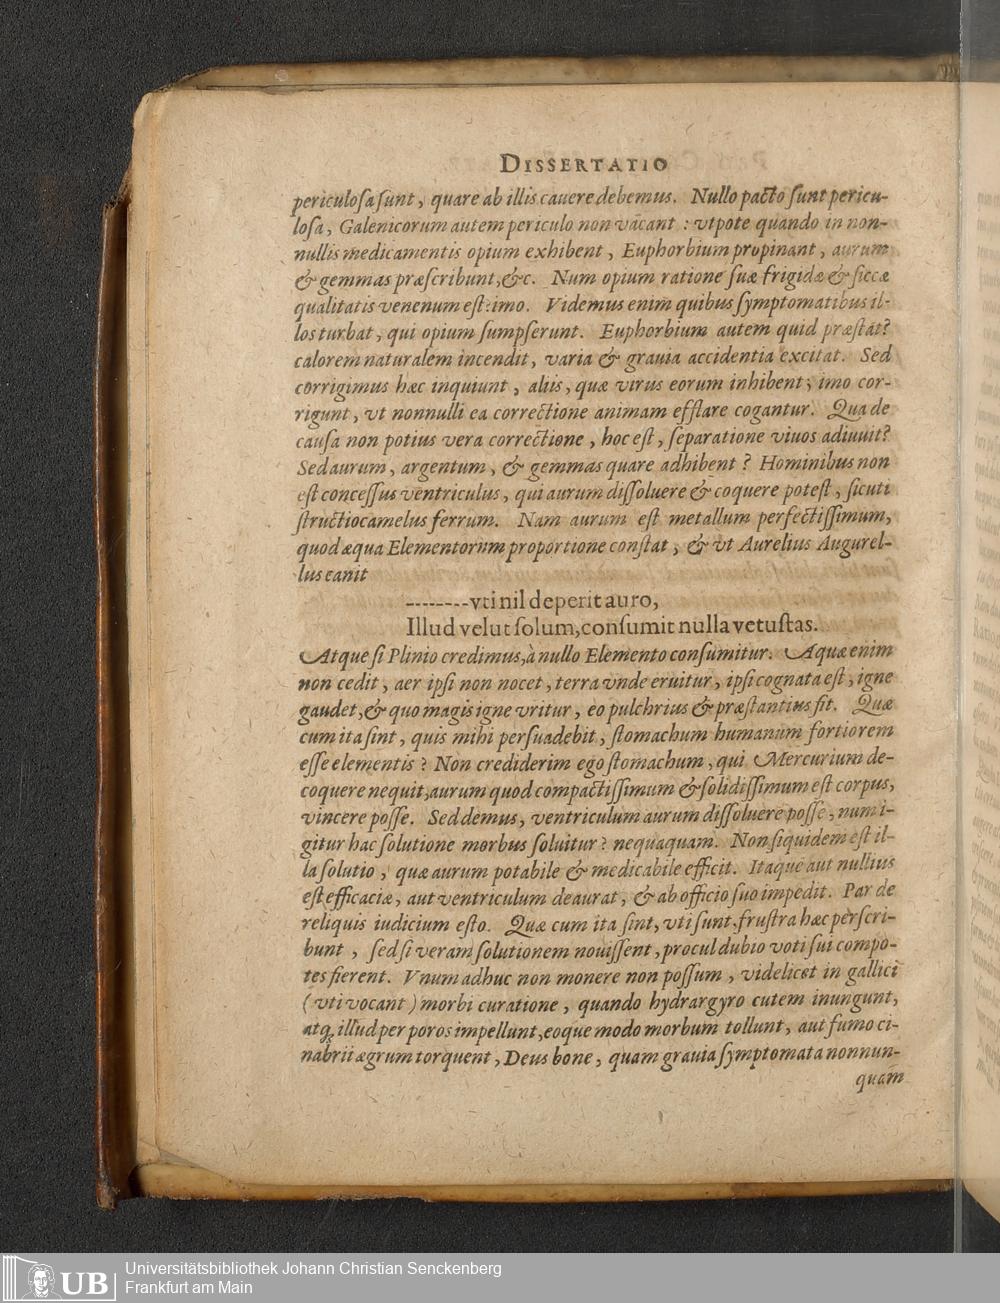 DISSERTATIO
periculosa sunt, quare ab illis cauere debemus. Nullo pacto sunt pericu-
losa, Galenicorum autem periculo non vacant: vtpote quando in non-
nullis medicamentis opium exhibent, Euphorbium propinant, aurum
& gemmas præscribunt, &c. Num opium ratione suæ frigidæ & siccæ
qualitatis venenum est: imo. Videmus enim quibus symptomatibus il-
los turbat, qui opium sumpserunt. Euphorbium autem quid præstat?
calorem naturalem incendit, varia & grauia accidentia excitat. Sed
corrigimus hæc inquiunt, aliis, quæ virus eorum inhibent; imo cor-
rigunt, vt nonnulli ea correctione animam efflare cogantur. Qua de
causa non potius vera correctione, hoc est, separatione viuos adiuuit?
Sed aurum, argentum, & gemmas quare adhibent? Hominibus non
est concessus ventriculus, qui aurum dissoluere & coquere potest, sicuti
structiocamelus ferrum. Nam aurum est metallum perfectissimum,
quod æqua Elementorum proportione constat, & vt Aurelius Augurel-
lus canit
--------vti nil deperit auro,
Illud velut solum, consumit nulla vetustas.
Atque si Plinio credimus, à nullo Elemento consumitur. Aquæ enim
non cedit, aer ipsi non nocet, terra vnde eruitur, ipsi cognata est, igne
gaudet, & quo magis igne vritur, eo pulchrius & præstantius fit. Quæ
cum ita sint, quis mihi persuadebit, stomachum humanum fortiorem
esse elementis? Non crediderim ego stomachum, qui Mercurium de-
coquere nequit, aurum quod compactissimum & solidissimum est corpus,
vincere posse. Sed demus, ventriculum aurum dissoluere posse, num i-
gitur hac solutione morbus soluitur? nequaquam. Non siquidem est il-
la solutio, quæ aurum potabile & medicabile efficit. Itaque aut nullius
est efficaciæ, aut ventriculum deaurat, & ab officio suo impedit. Par de
reliquis iudicium esto. Quæ cum ita sint, vti sunt, frustra hæc perscri-
bunt, sed si veram solutionem nouissent, procul dubio voti sui compo-
tes fierent. Vnum adhuc non monere non possum, videlicet in gallici
(vti vocant) morbi curatione, quando hydrargyro cutem inungunt,
atq; illud per poros impellunt, eoque modo morbum tollunt, aut fumo ci-
nabrii ægrum torquent, Deus bone, quam grauia symptomata nonnun-
quam
UB
Universitätsbibliothek Johann Christian Senckenberg
Frankfurt am Main